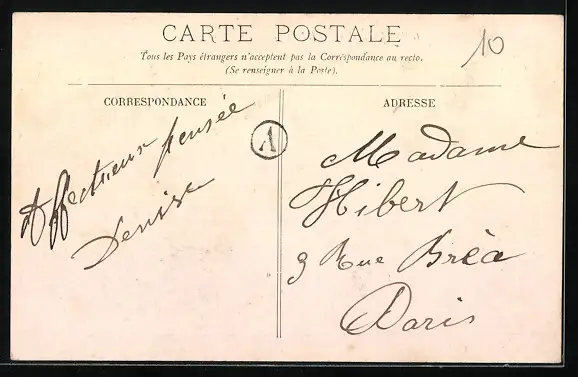 CARTE POSTALE
Tous les Pays étrangers n'acceptent pas la Correspondance au recto.
(Se renseigner à la Poste).
10
CORRESPONDANCE
Affectueux pensée
Denise
A
ADRESSE
Madame
Hibert
9 Rue Bréa
Paris